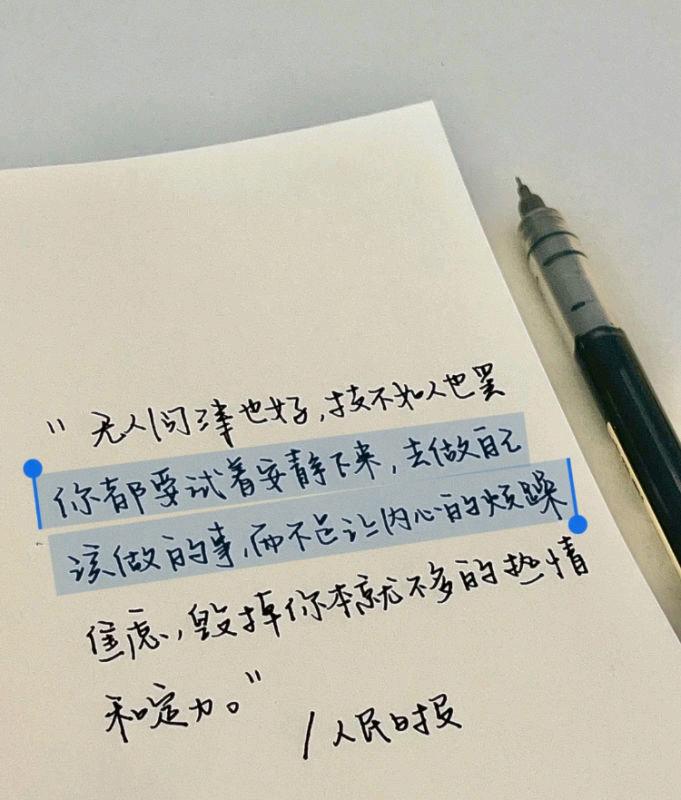 "无人问津也好,技不如人也罢
你都要试着安静下来,去做自己
该做的事,而不是让内心的烦躁
焦虑,毁掉你本就不多的热情
和定力。"
/人民日报